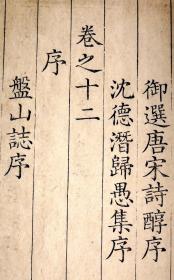 御選唐宋詩醇序
沈德潛歸愚集序
卷之十二
序
盤山誌序